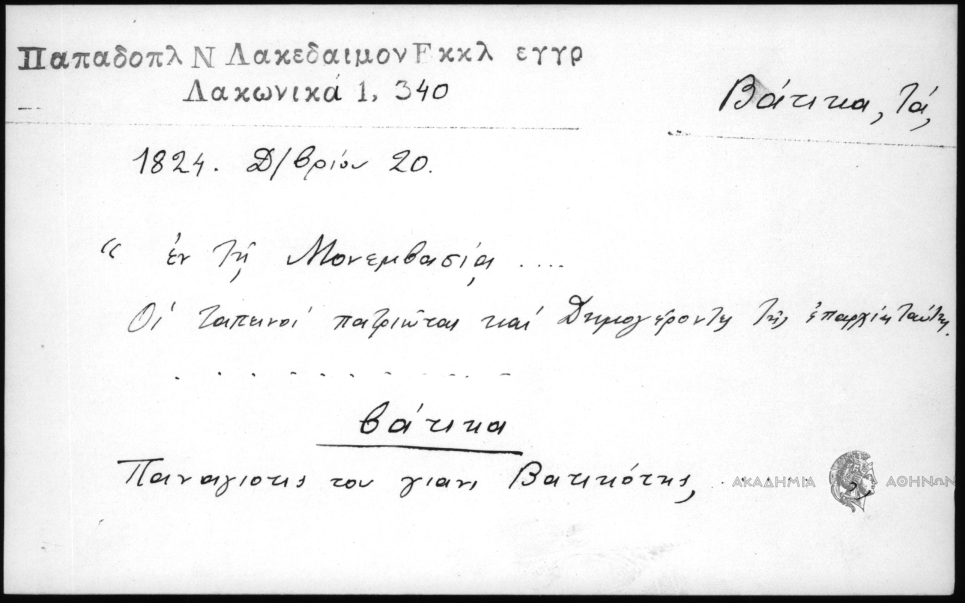 Παπαδοπλ Ν Λακεδαιμον Εκκλ εγγρ
Λακωνικά 1, 340
Βάτικα, τά,
1824. Δ/βρίου 20.
“ ἐν τῇ Μονεμβασίᾳ ....
Οἱ ταπεινοί πατριῶται καί Δημογέροντες τῆς ἐπαρχίας ταύτης.
. . . . . . . . . .
Βάτικα
Παναγιοτις του γιανι Βατικιότης, .....”
ΑΚΑΔΗΜΙΑ ΑΘΗΝΩΝ